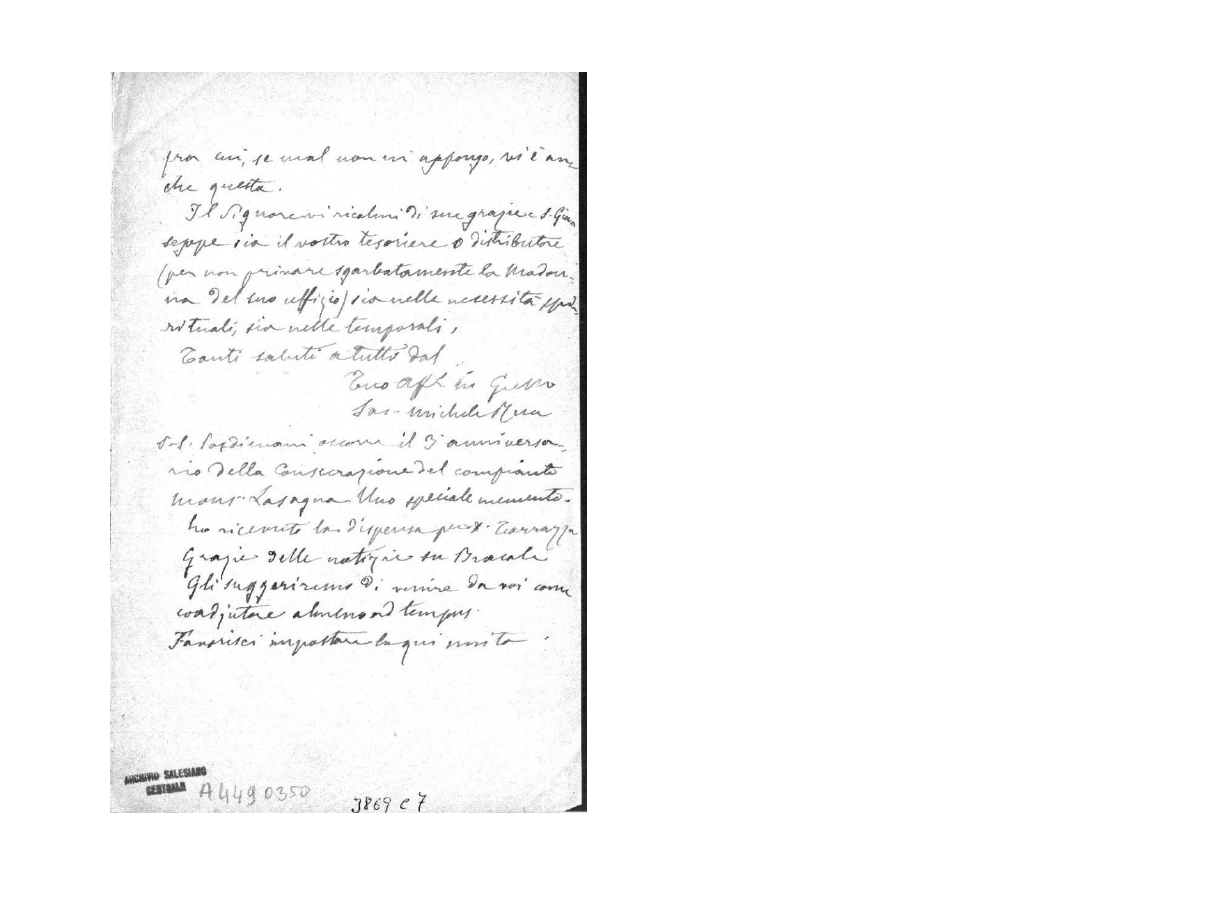 fra cui, se mal non mi appongo, vi è an-
che questa.
Il Signore vi ricolmi di sue grazie e S. Giu-
seppe sia il vostro tesoriere o distributore
(per non privare sgarbatamente la Madon-
na del suo uffizio) sia nelle necessità spi-
rituali, sia nelle temporali,
Tanti saluti a tutti dal
Tuo Aff. in G.
Sac. Michele Rua
occorre il 3° anniversa-
rio della Consecrazione del compianto
Mons. Lasagna. Uno speciale memento.
ho ricevuto la dispensa per D. Torrazza
Grazie delle notizie su Bracale
Gli suggeriremo di venire da voi come
coadjutore almeno ad tempus.
Favorisci impostare la qui unita
ARCHIVIO SALESIANO
CENTRALE
A4490350
3869 C 7